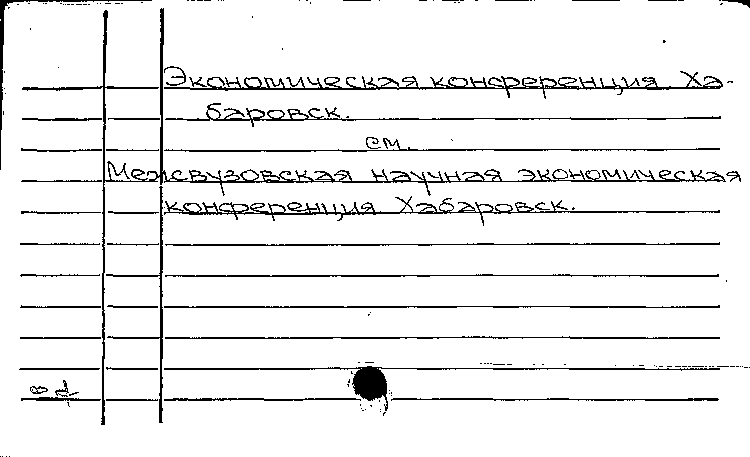 Экономическая конференция Ха-
баровск.
см.
Межвузовская научная экономическая
конференция Хабаровск.